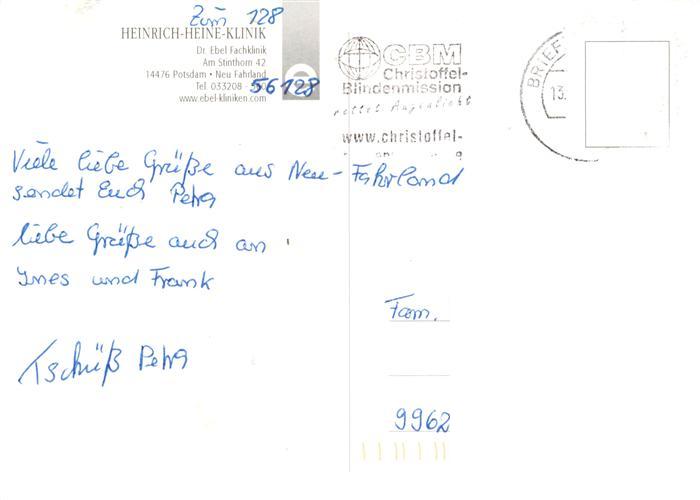 Zim 128
HEINRICH-HEINE-KLINIK
Dr. Ebel Fachklinik
Am Stinthorn 42
14476 Potsdam • Neu Fahrland
Tel. 033208 - 56128
www.ebel-kliniken.com
CBM
Christoffel-
Blindenmission
rettet Augenlicht
www.christoffel-
BRIEF
13.
Viele liebe Grüße aus Neu-Fahrland
sendet Euch Petra
liebe Grüße auch an
Ines und Frank
Tschüß Petra
Fam.
9962